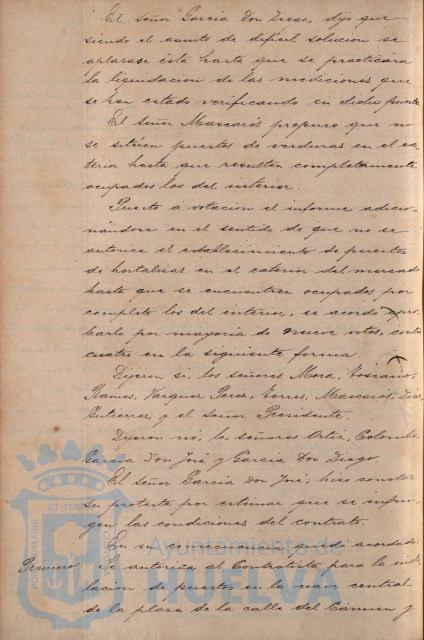 El Señor García Don Diego, dijo que
siendo el asunto de dificil solucion se
aplazase ésta hasta que se practicara
la liquidacion de las mediciones que
se han estado verificando en dicho puesto
El Señor Mascarós propuso que no
se sitúen puestos de verduras en el ex
terior hasta que resulten completamente
ocupados los del interior.
Puesto á votacion el informe adicio-
nándose en el sentido de que no se
autorice el establecimiento de puestos
de hortalizas en el exterior del mercado
hasta que se encuentren ocupados por
completo los del interior, se acordó apro-
barlo por mayoria de nueve votos, contra
cuatro en la siguiente forma.
Dijeron si, los señores Mora, Toscano,
Ramos, Vazquez Perez, Torres, Mascarós, Diaz
Gutierrez, y el señor Presidente
Dijeron nó, los señores Ortiz, Colombo
García Don José y García Don Diego.
El Señor García Don José, hizo constar
su protesta por estimar que se infrin-
gen las condiciones del contrato.
En su que acordado:
Primero Se autoriza al Contratista para la insta
lacion de puestos en la nave central
de la plaza de la calle del Cármen y
Ayuntamiento de
HUELVA